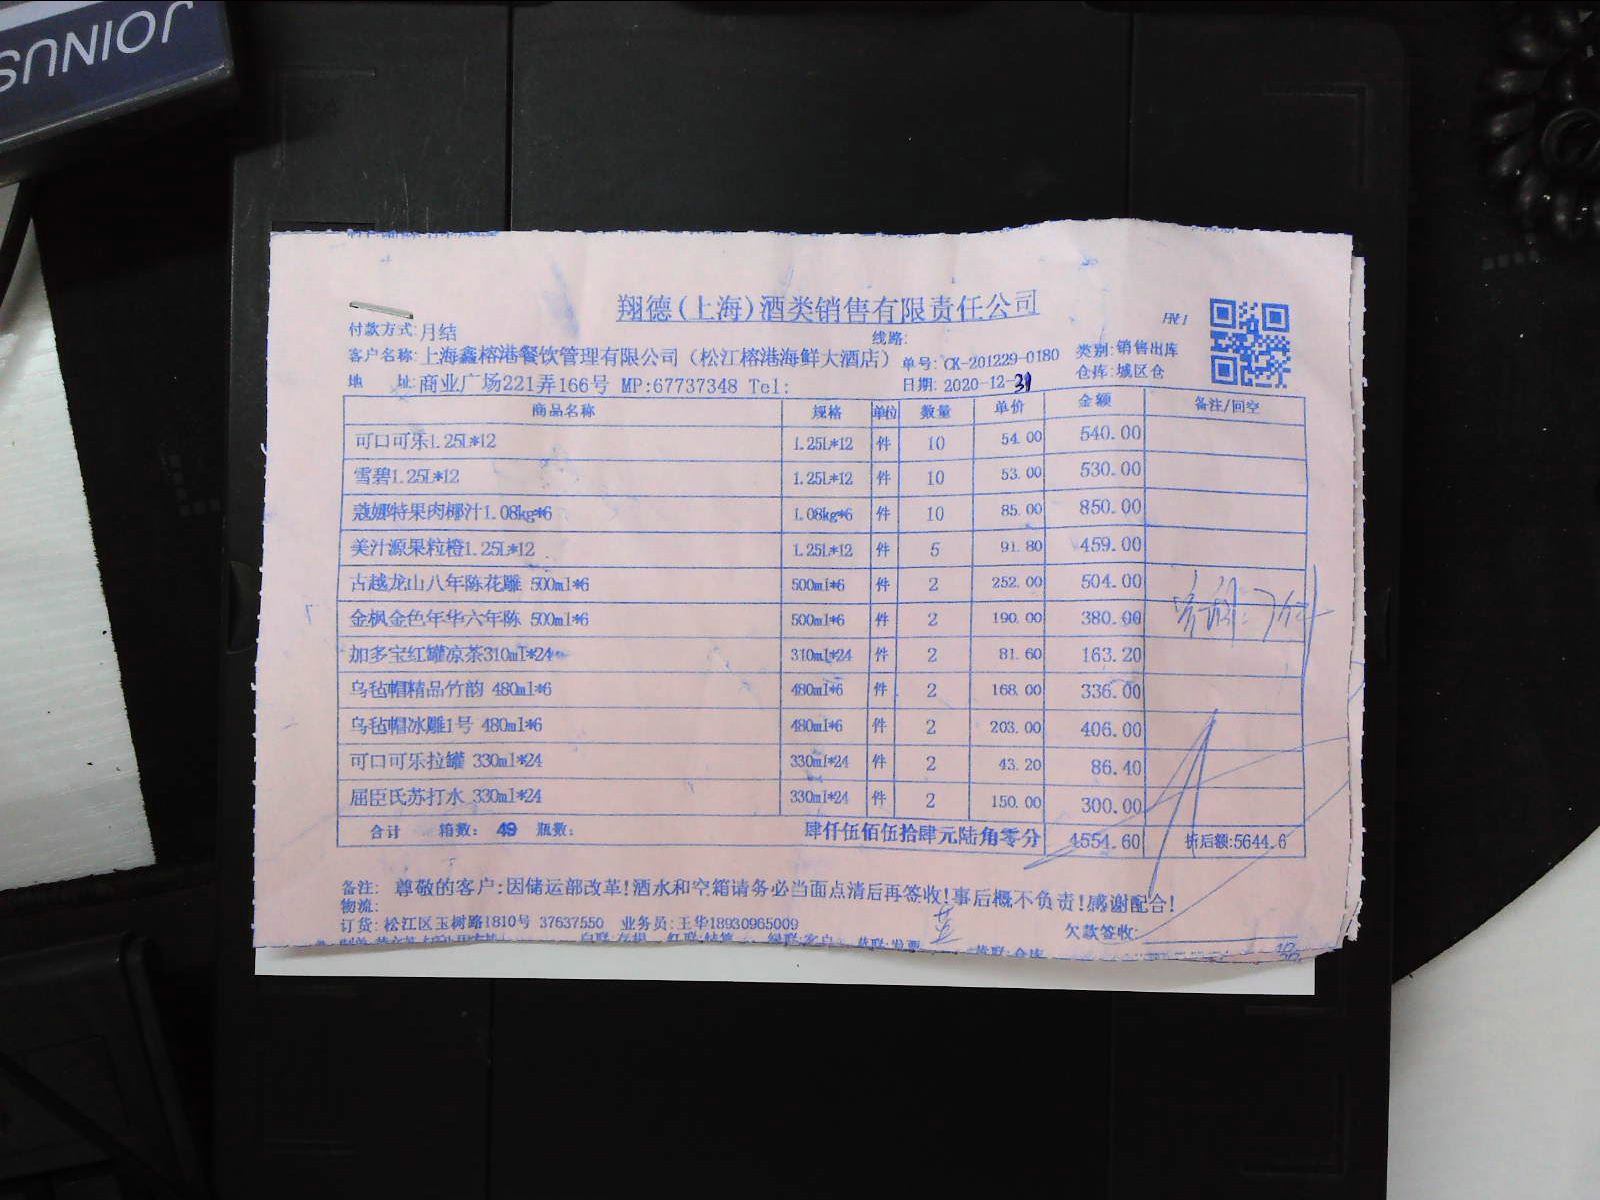 JOINUS
翔德(上海)酒类销售有限责任公司
付款方式:月结
线路:
客户名称:上海鑫榕港餐饮管理有限公司(松江榕港海鲜大酒店) 单号:CK-201229-0180 类别:销售出库
地 址:商业广场221弄166号 MP:67737348 Tel: 日期:2020-12-31 仓库:城区仓
商品名称 规格 单位 数量 单价 金额 备注/回空
可口可乐1.25L*12 1.25L*12 件 10 54.00 540.00
雪碧1.25L*12 1.25L*12 件 10 53.00 530.00
蔻娜特果肉椰汁1.08kg*6 1.08kg*6 件 10 85.00 850.00
美汁源果粒橙1.25L*12 1.25L*12 件 5 91.80 459.00
古越龙山八年陈花雕 500ml*6 500ml*6 件 2 252.00 504.00
金枫金色年华六年陈 500ml*6 500ml*6 件 2 190.00 380.00
加多宝红罐凉茶310ml*24 310ml*24 件 2 81.60 163.20
乌毡帽精品竹韵 480ml*6 480ml*6 件 2 168.00 336.00
乌毡帽冰雕1号 480ml*6 480ml*6 件 2 203.00 406.00
可口可乐拉罐 330ml*24 330ml*24 件 2 43.20 86.40
屈臣氏苏打水 330ml*24 330ml*24 件 2 150.00 300.00
合计 箱数: 49 瓶数: 肆仟伍佰伍拾肆元陆角零分 4554.60 折后额:5644.6
备注: 尊敬的客户:因储运部改革!酒水和空箱请务必当面点清后再签收!事后概不负责!感谢配合!
物流:
订货:松江区玉树路1810号 37637550 业务员:王华18930965009 欠款签收: